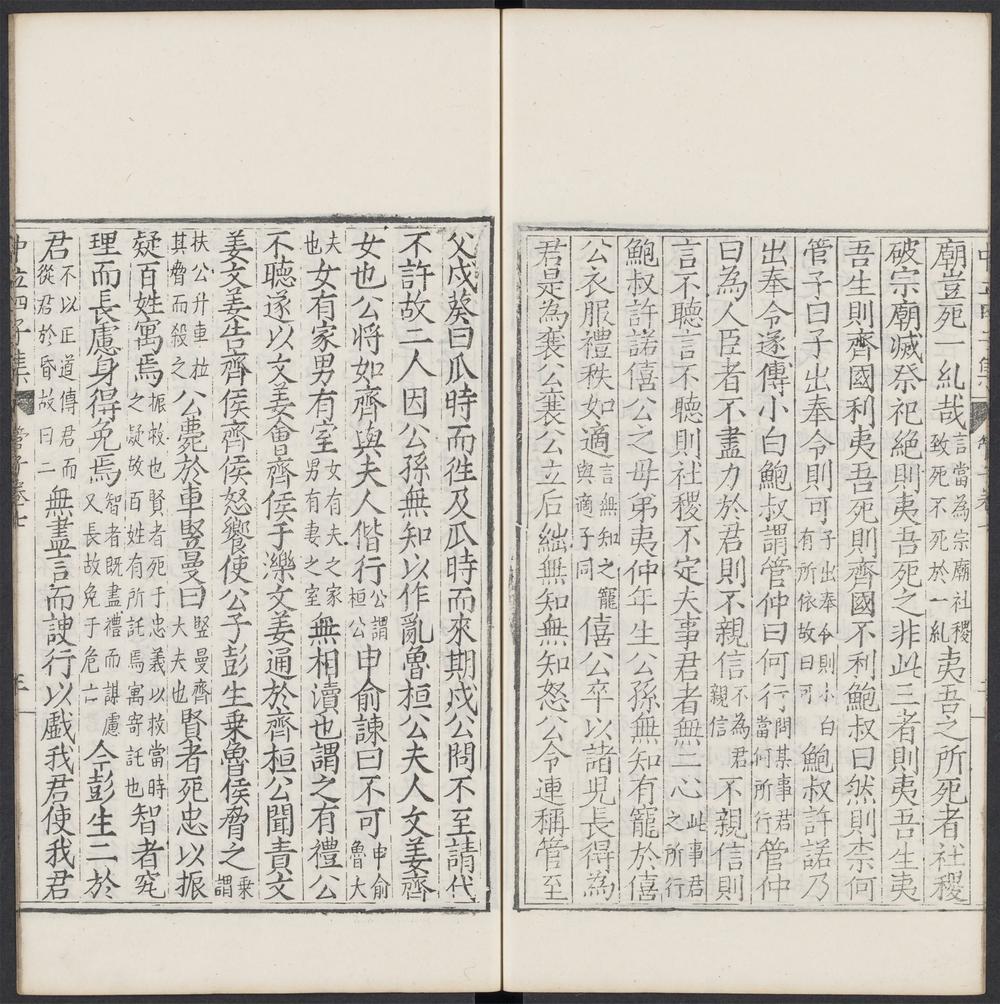 廟豈死一糺哉言當為宗廟社稷致死不死於一糺夷吾之所死者社稷
破宗廟滅祭祀絕則夷吾死之非此三者則夷吾生夷
吾生則齊國利夷吾死則齊國不利鮑叔曰然則柰何
管子曰子出奉令則可子出奉令則小白有所依故曰可鮑叔許諾乃
出奉令遂傅小白鮑叔謂管仲曰何行行問某事君當何所行管仲
曰為人臣者不盡力於君則不親信不為君親信不親信則
言不聽言不聽則社稷不定夫事君者無二心此事君之所行
鮑叔許諾僖公之母弟夷仲年生公孫無知有寵於僖
公衣服禮秩如適言無知之寵與適子同僖公卒以諸兒長得為
君是為襄公襄公立后絀無知無知怒公令連稱管至
父戍葵曰瓜時而徃及瓜時而來期戍公問不至請代
不許故二人因公孫無知以作亂魯桓公夫人文姜齊
女也公將如齊與夫人偕行公謂桓公申俞諫曰不可申俞魯大
夫也女有家男有室女有夫之家男有妻之室無相瀆也謂之有禮公
不聽遂以文姜會齊侯于濼文姜通於齊桓公聞責文
姜文姜告齊侯齊侯怒饗使公子彭生乗魯侯脅之乗謂
扶公升車拉其脅而殺之公薨於車豎曼曰豎曼齊大夫也賢者死忠以振
疑百姓寓焉振救也賢者死于忠義以救當時之疑故百姓有所託焉寓寄託也智者究
理而長慮身得免焉智者既盡禮而謀慮又長故免于危亡今彭生二於
君不以正道傅君而從君於昏故曰二無盡言而諛行以戲我君使我君